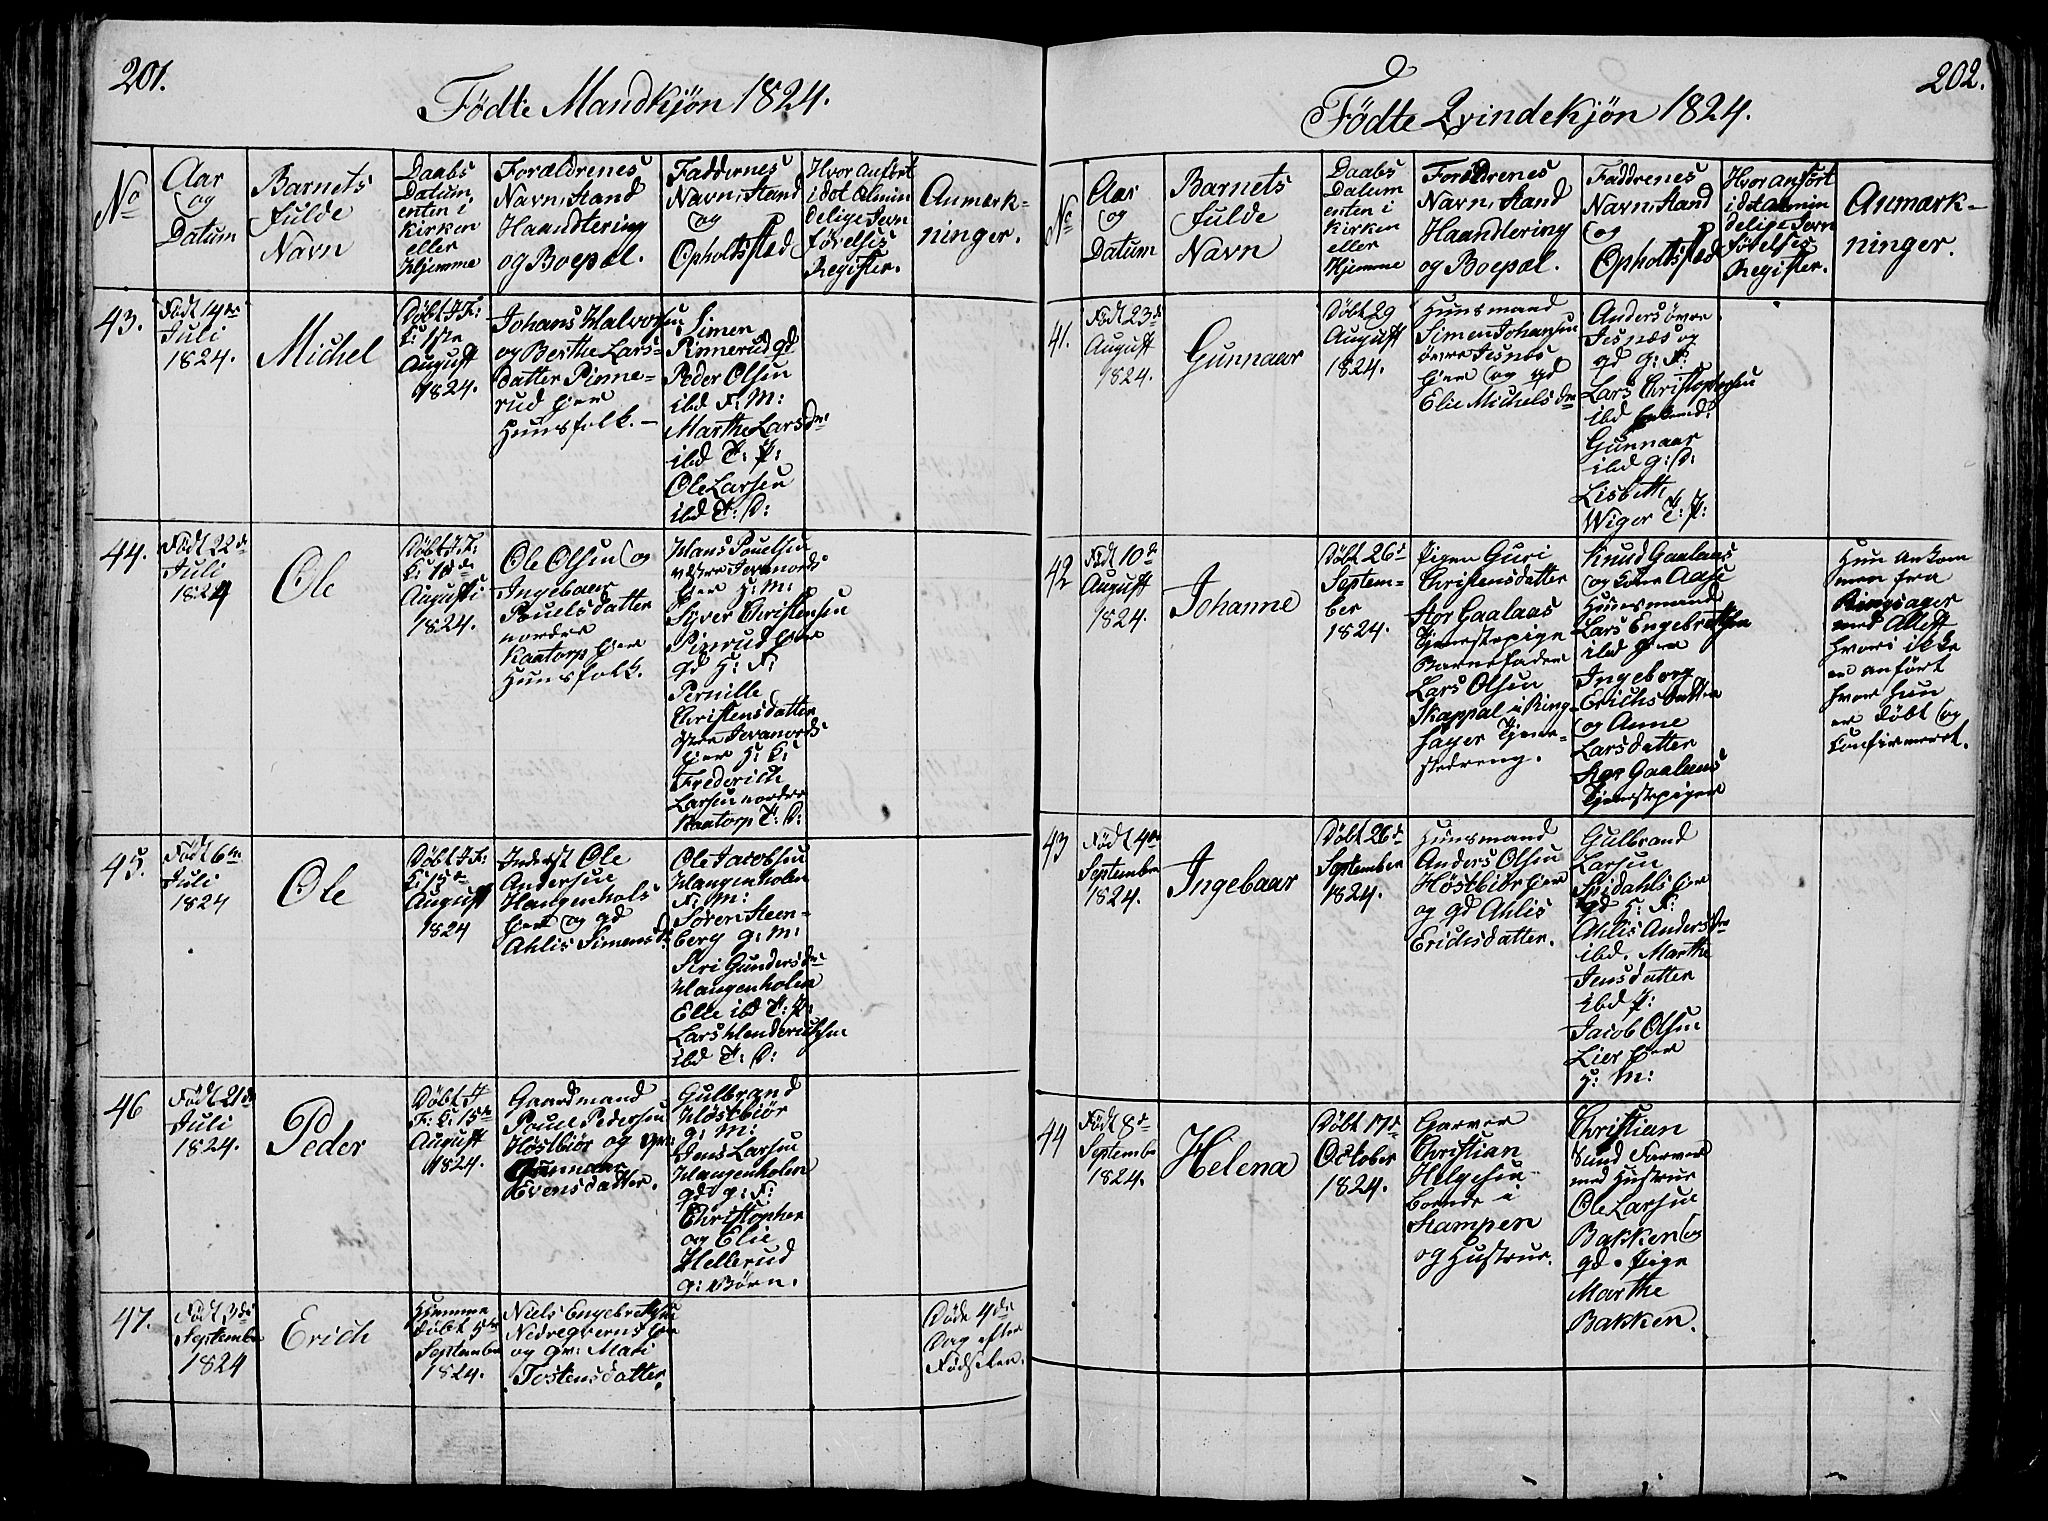 201.
Födte Mandkjön 1824.
No
Aar
og
Datum
Barnets
fulde
Navn
Daabs
Datum,
enten i
Kirken
eller
Hjemme
Forældrenes
Navn, Stand
Haandtering
og Boepæl.
Faddernes
Navn, Stand
og
Opholdssted
Hvor anført
i det Almin
delige Jevn
førelses
Register.
Anmærk-
ninger.
43.
Födt 14de
Juli
1824.
Michel
Döbt I F:
K: 1ste
August
1824.
Johans Halvorsen
og Berthe Lars-
datter Pinne-
rud hjer
Huusfolk.-
Simen
Pinnerud gd
Peder Olsen
ibd F: M:
Marthe Larsdr
ibd T: P:
Ole Larsen
ibd T: D:
44.
Födt 22de
Juli
1824
Ole
Döbt I F:
K:
Augusti
1824.
Ole Olsen og
Ingebaar
Pouelsdatter
nordre
Kaatorp hjer
Huusfolk.
Hans Pouelsen
hjer H: M:
Syver Christensen
Pinrud hjer
gd H: F:
Pernille
Christensdatter
hjer H: K:
Frederich
Larsen nordre
Kaatorp T: D:
45.
Födt 6te
Juli
1824
Ole
Döbt I F:
K: 15de
August
1824
Inderst Ole
Andersen
Hangenhols
hjer og gd
Ahlis Simensd
Ole Jacobsen
Hangenholen
F: M:
Sören Steen-
berg g: M:
Siri Gundersdr
Hangenholen
Elle ibd T: P:
Lars Henderichsen
ibd T: D:
46
Födt 21de
Juli
1824.
Peder
Döbt I
F: K: 15de
August
1824.
Gaardmand
Pouel Pedersen
Höstbiör og
Gunnaar
Evensdatter.
Gulbrand
Höstbiör
g: M:
Jens Larsen
Hangenholen
gd g: F:
Christopher
og Elie
Hellerud
g: Börn.
47.
Födt 3de
September
1824
Erich
Hjemme
döbt 5te
September
1824.
Niels Engebretsen
Nedregverns hjer
og gr: Mari
Tostensdatter.
Döde 4de
Dag efter
Födselen.
202.
Födte Qvindekjön 1824.
No
Aar
og
Datum
Barnets
fulde
Navn
Daabs
Datum
enten i
Kirken
eller
Hjemme
Forældrenes
Navn, Stand
Haandtering
og Boepæl.
Faddrenes
Navn, Stand
og
Opholtssted
Hvor anfört
i det Almin
delige Jevn
förelses
Register.
Anmærk-
ninger.
41.
Födt 23de
August
1824.
Gunnaar
Döbt 29
August
1824.
Huusmand
Simen Johansen
övre Jesnæs
hjer og gd
Elie Michelsdr
Anders övre
Jesnæs og
gd g: F:
Lars Christophersen
ibd
Gunnaar
ibd g: D:
Lisbeth
Wiger T: P:
42
Födt 10de
August
1824.
Johanne
Döbt 26de
Septem-
ber
1824.
Pigen Guri
Christensdatter
Stor Gaalaas
tjenestepige
Barnefader
Lars Olsen
Skappal i Ring-
sager Tjene-
stedreng.
Knud Gaalaas
og Kone Aase
Huusmand
Lars Engebretsen
ibd hjer
Ingeborg
Erichsdatter
og Anne
Larsdatter
Stor Gaalaas
tjenestepiger
Hun ankom
men fra
Ringsager
med Attest
hvori ikke
er anfört
hvor hun
er döbt og
Confirmeret.
43
Födt 4de
September
1824.
Ingebaar
Döbt 26de
September
1824.
Huusmand
Anders Olsen
Höstbiör hjer
og gd Ahlis
Erichsdatter.
Gulbrand
Larsen
hjer
gd H: F:
Ahlis Andersdr
ibd. Marthe
Jensdatter
ibd P:
Jacob Olsen
Lier hjer
H: M:
44
Födt 8de
September
1824.
Helena
Döbt 17de
October
1824.
Garver
Christian
Helgesen
boende i
Stampen
og Hustrue.
Christian
Sund Farver
med Hustrue
Ole Larsen
Bakken og
gd. Pige
Marthe
Bakken.